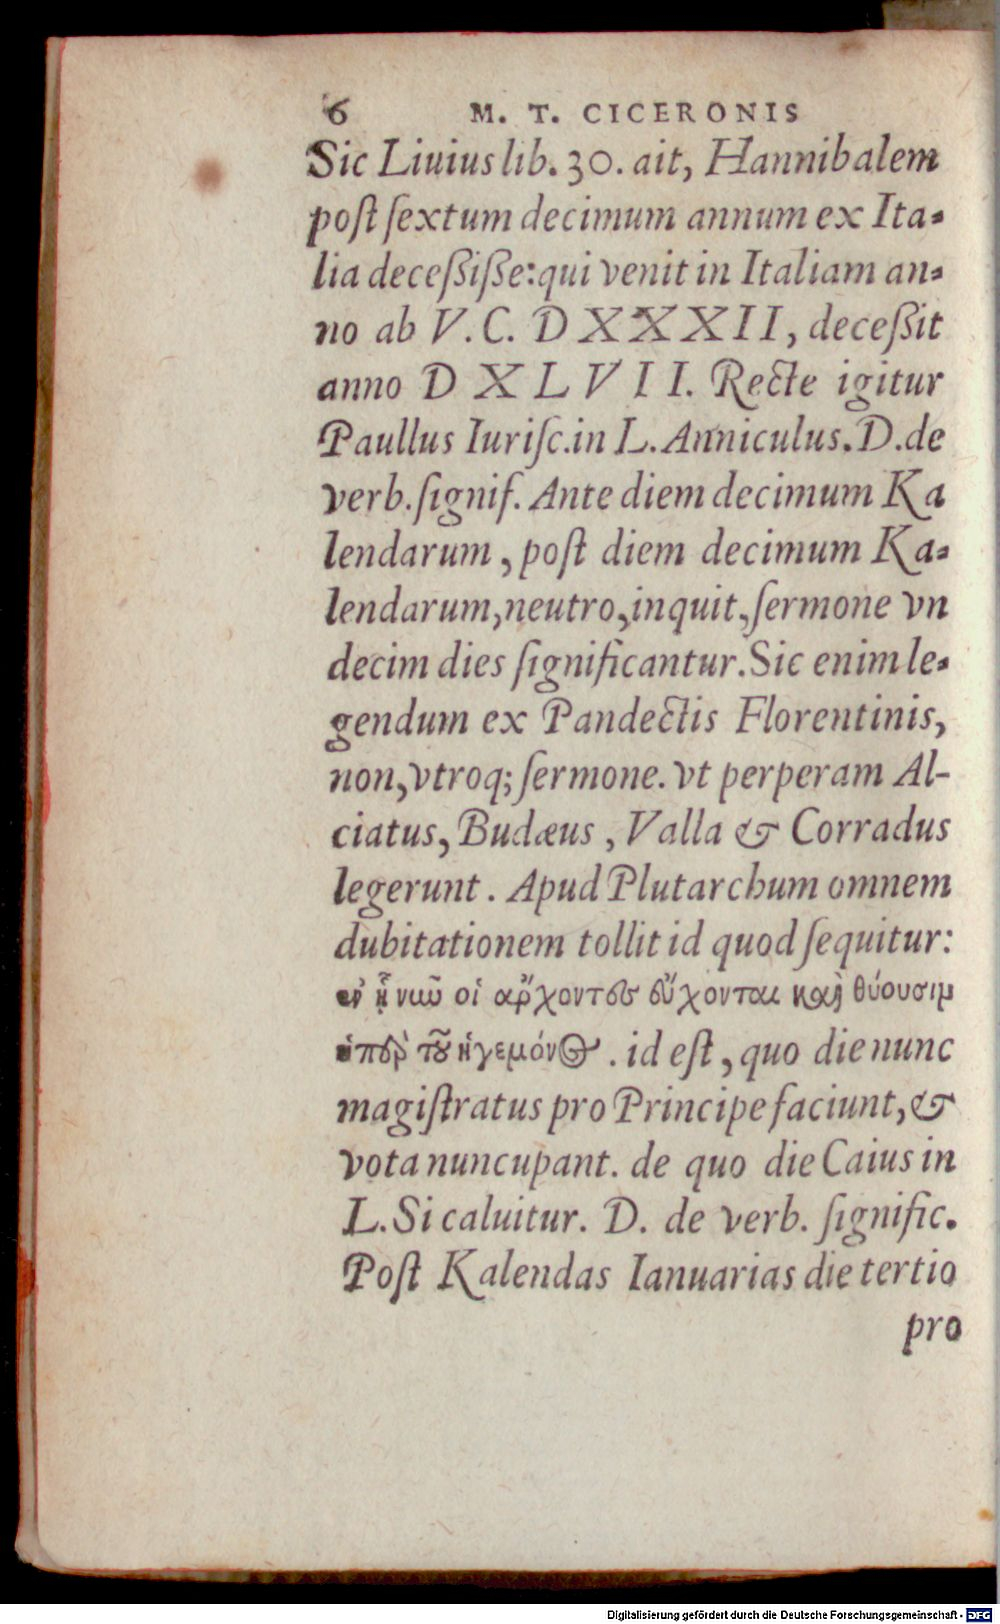 6 M. T. CICERONIS
Sic Liuius lib. 30. ait, Hannibalem
poſt ſextum decimum annum ex Ita-
lia deceßiße: qui venit in Italiam an-
no ab V. C. D XXXII, deceßit
anno D X L V I I. Recte igitur
Paullus Iuriſc. in L. Anniculus. D. de
verb. ſignif. Ante diem decimum Ka
lendarum, poſt diem decimum Ka-
lendarum, neutro, inquit, ſermone vn
decim dies ſignificantur. Sic enim le-
gendum ex Pandectis Florentinis,
non, vtroq; ſermone. vt perperam Al-
ciatus, Budæus, Valla & Corradus
legerunt. Apud Plutarchum omnem
dubitationem tollit id quod ſequitur:
ἐν ᾗ νιῶ οἱ ἄρχοντες εὔχονται καὶ θύουσιμ
ὑπὲρ τοῦ ἡγεμόνος. id eſt, quo die nunc
magiſtratus pro Principe faciunt, &
vota nuncupant. de quo die Caius in
L. Si caluitur. D. de verb. ſignific.
Poſt Kalendas Ianuarias die tertio
pro
Digitalisierung gefördert durch die Deutsche Forschungsgemeinschaft - DFG